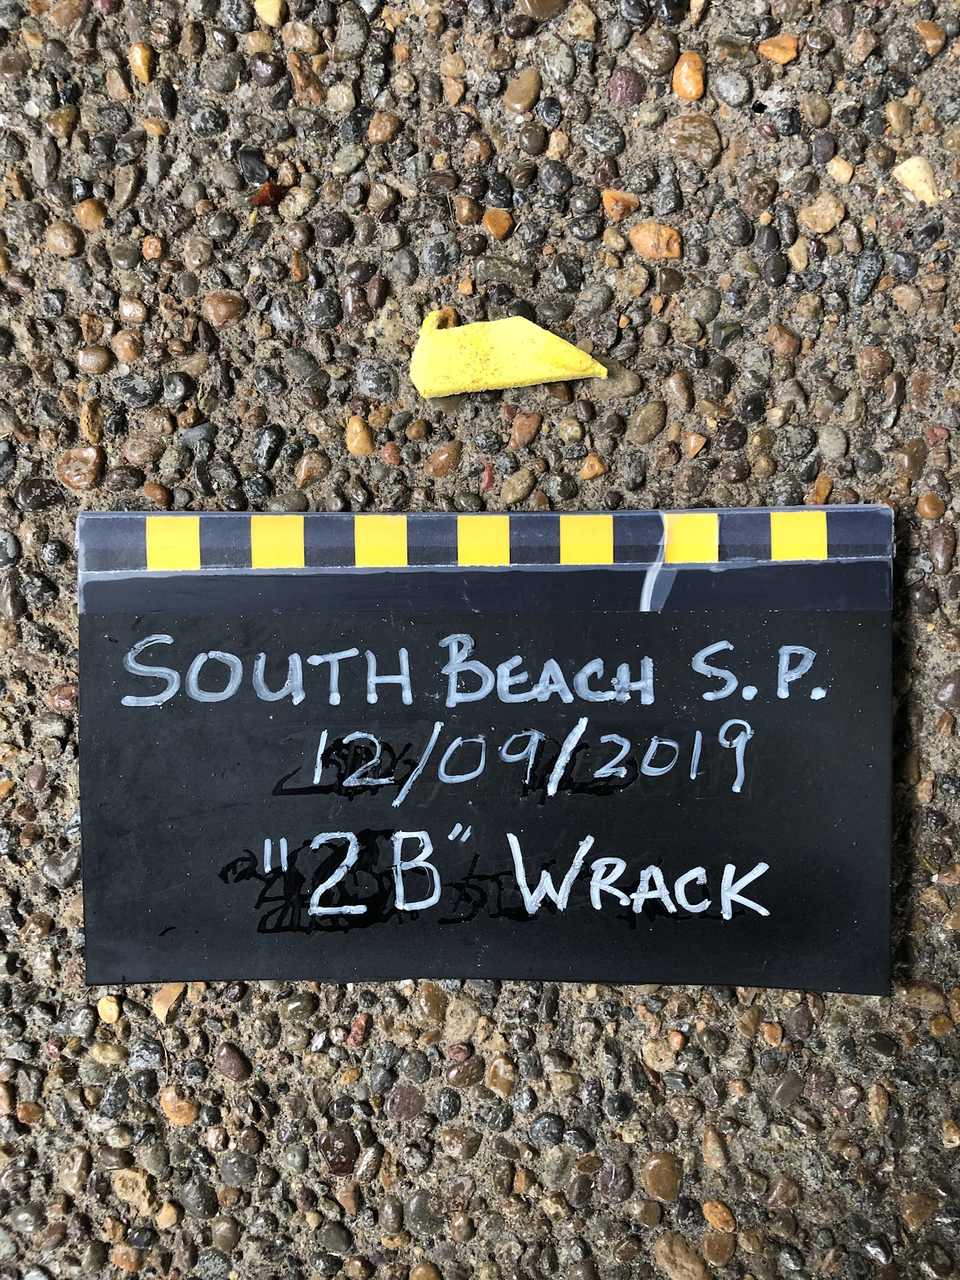 SOUTH BEACH S.P.
12/09/2019
"2B" WRACK